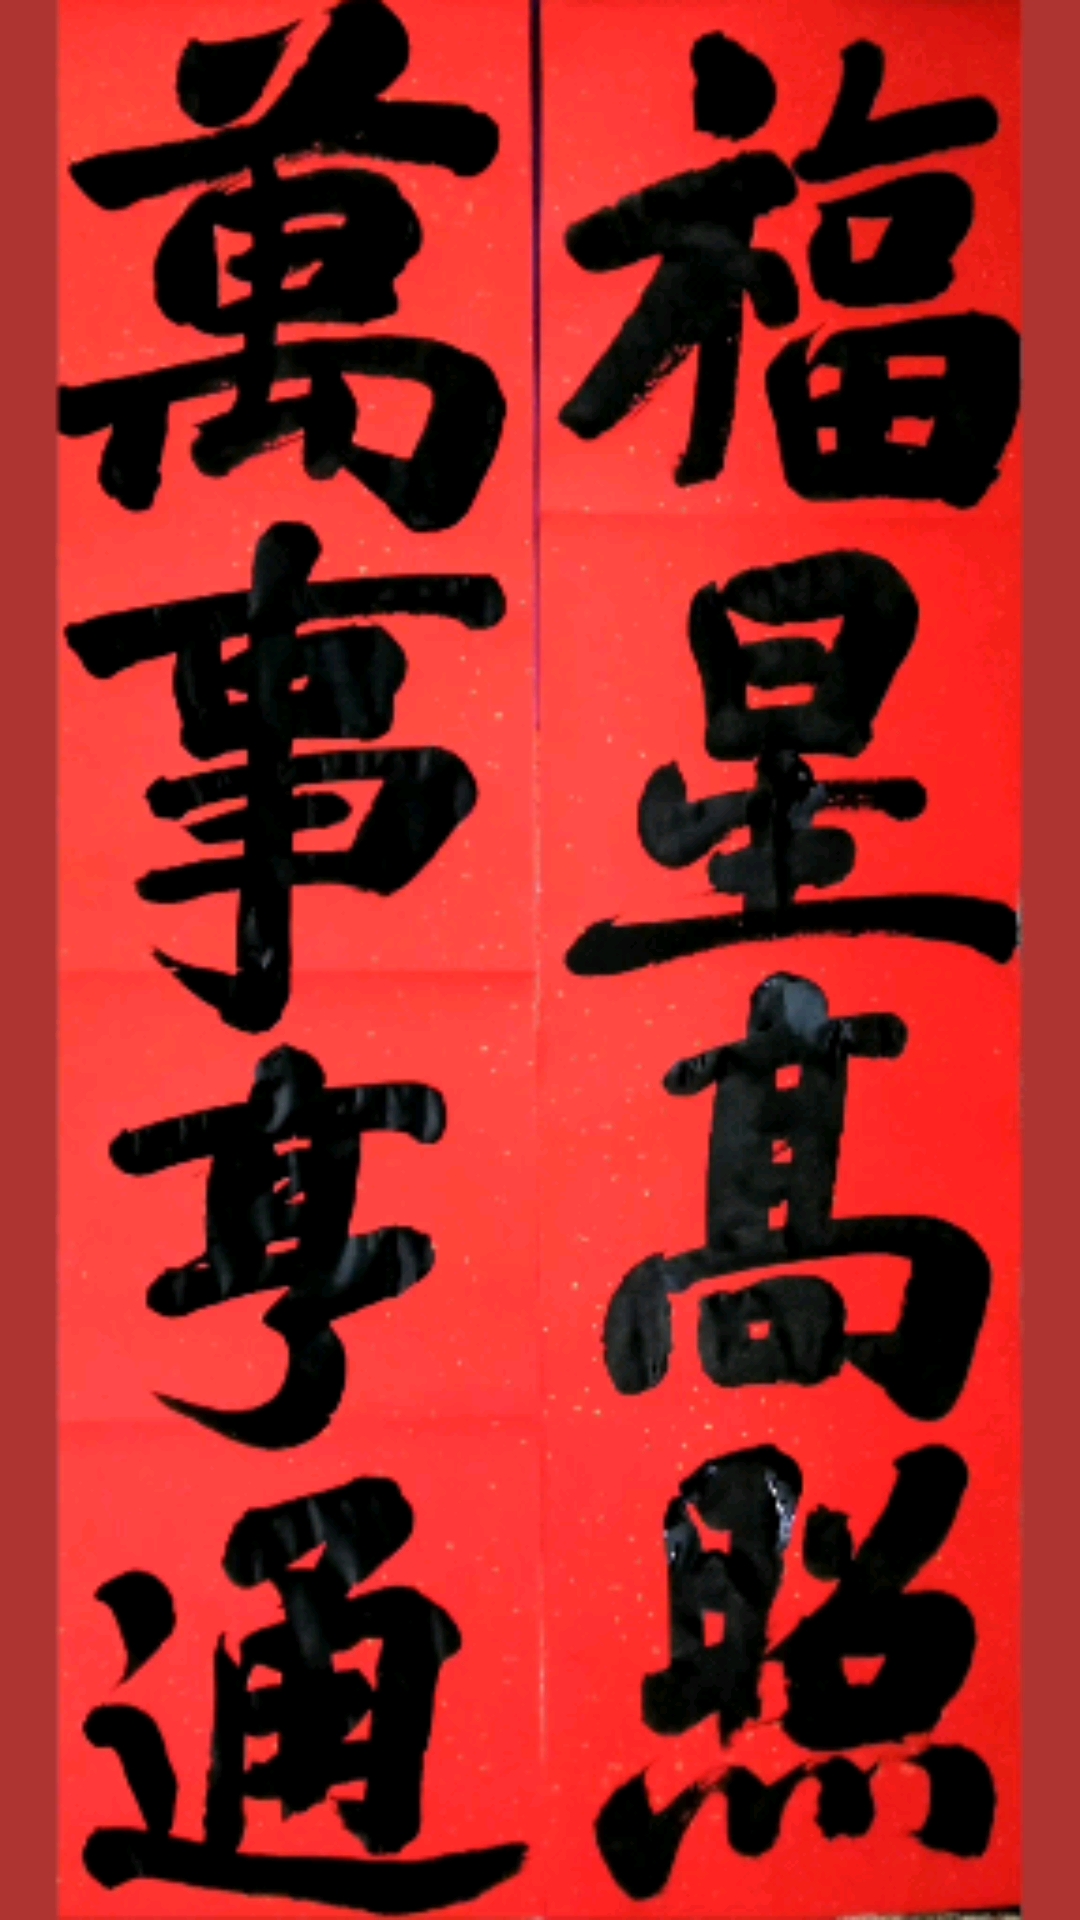 福星髙照
萬事亨通